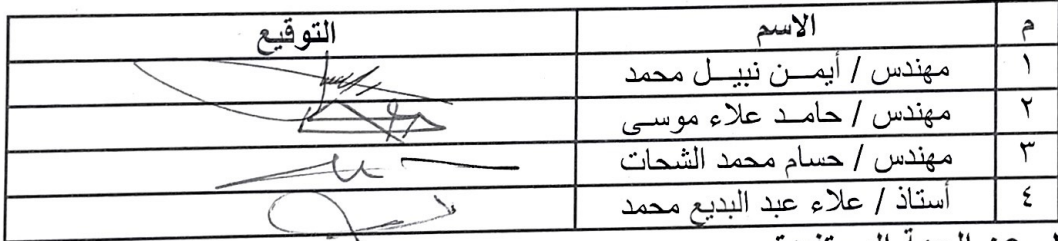 م الاسم التوقيع
١ مهندس / أيمـــن نبيـــل محمد
٢ مهندس / حامـــد علاء موسـى
٣ مهندس / حسام محمد الشحات
٤ أستاذ / علاء عبد البديع محمد